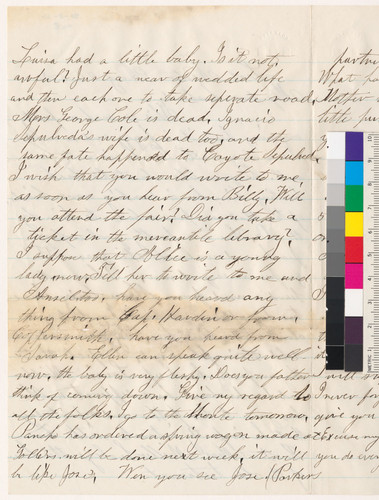 Luisa had a little baby. Is it not
awful? Just a near of wedded life
and then each one to take seperate road,
Mrs George Cole is dead, Ignacio
Sepulveda's wife is dead too, and the
same fate happened to Coyote Sepulved.
I wish that you would write to me,
as soon as you hear from Billy, Will
you attend the fair? Did you take a
ticket in the mercantile library?
I suppose that Alice is a young
lady now. Tell her to write to me and
have you heard any
thing from Cap. Hardin or from
have you heard from
Ellen can speak quite well
now. the baby is very fleshy. Does you father
think of coming down. Give my regard to
all the folks. I go to the Monte tomorrow,
Pancho has ordered a spring wagon made at
Follers will be done next week, it will
be like Jose's, Wen you see Jose Parkers
partner
What
Mother
little
I
I never
give you
Excuse my
you do every